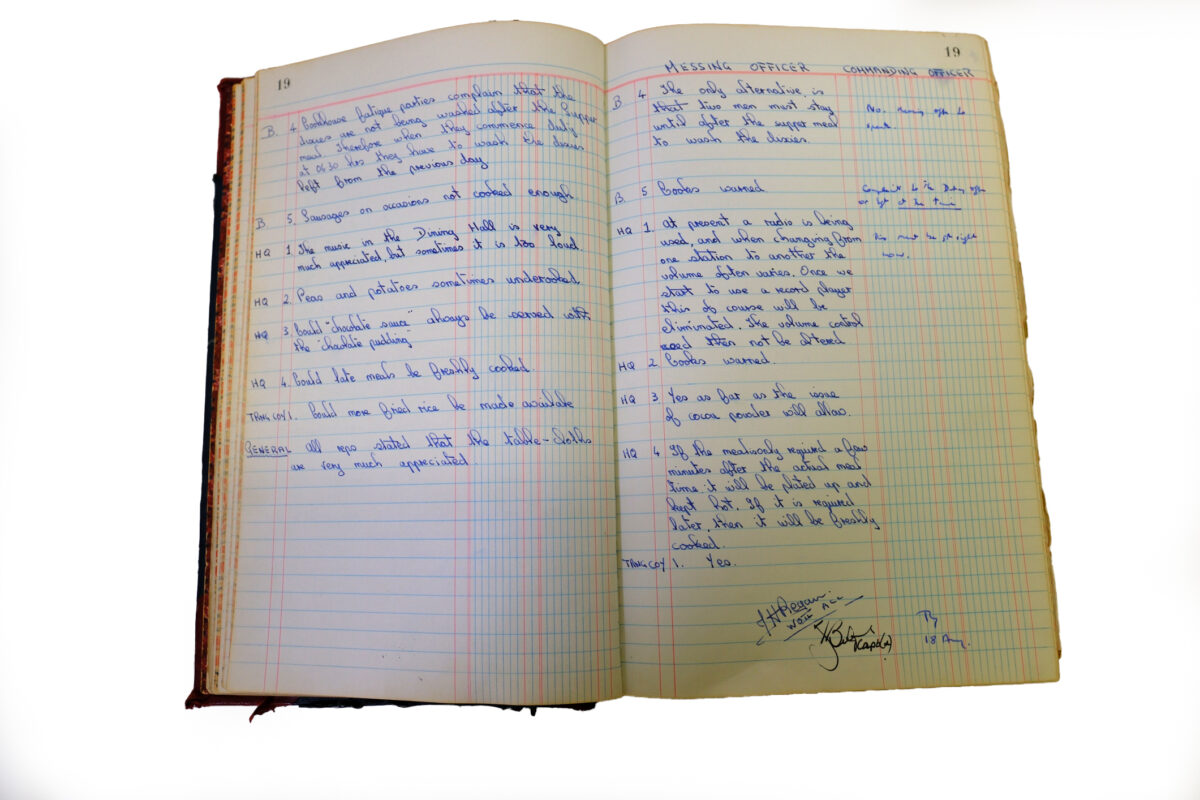 19
B. 4. Cookhouse fatigue parties complain that the
dixies are not being washed after the supper
meal. Therefore when they commence duty
at 0630 hrs they have to wash the dixies
left from the previous day
B 5. Sausages on occasions not cooked enough.
HQ 1 The music in the Dining Hall is very
much appreciated, but sometimes it is too loud
HQ 2. Peas and potatoes sometimes undercooked.
HQ 3. Could "chocolate sauce" always be served with
the "chocolate pudding"
HQ 4. Could late meals be freshly cooked.
TRNG COY 1. Could more fried rice be made available
GENERAL All reps stated that the table-cloths
are very much appreciated.
19
MESSING OFFICER COMMANDING OFFICER
B 4 The only alternative is
that two men must stay
until after the supper meal
to wash the dixies.
No.
B. 5 Cooks warned
Complaint to the Duty
at the time
HQ 1. At present a radio is being
used, and when changing from
one station to another the
volume often varies. Once we
start to use a record player
this of course will be
eliminated. The volume control
need then not be altered
This must be put right
now.
HQ 2. Cooks warned.
HQ 3 Yes as far as the issue
of cocoa powder will allow.
HQ 4 If the meal is only required a few
minutes after the actual meal
time it will be plated up and
kept hot. If it is required
later, then it will be freshly
cooked.
TRNG COY 1. Yes.
WOII ACC
18 Aug.